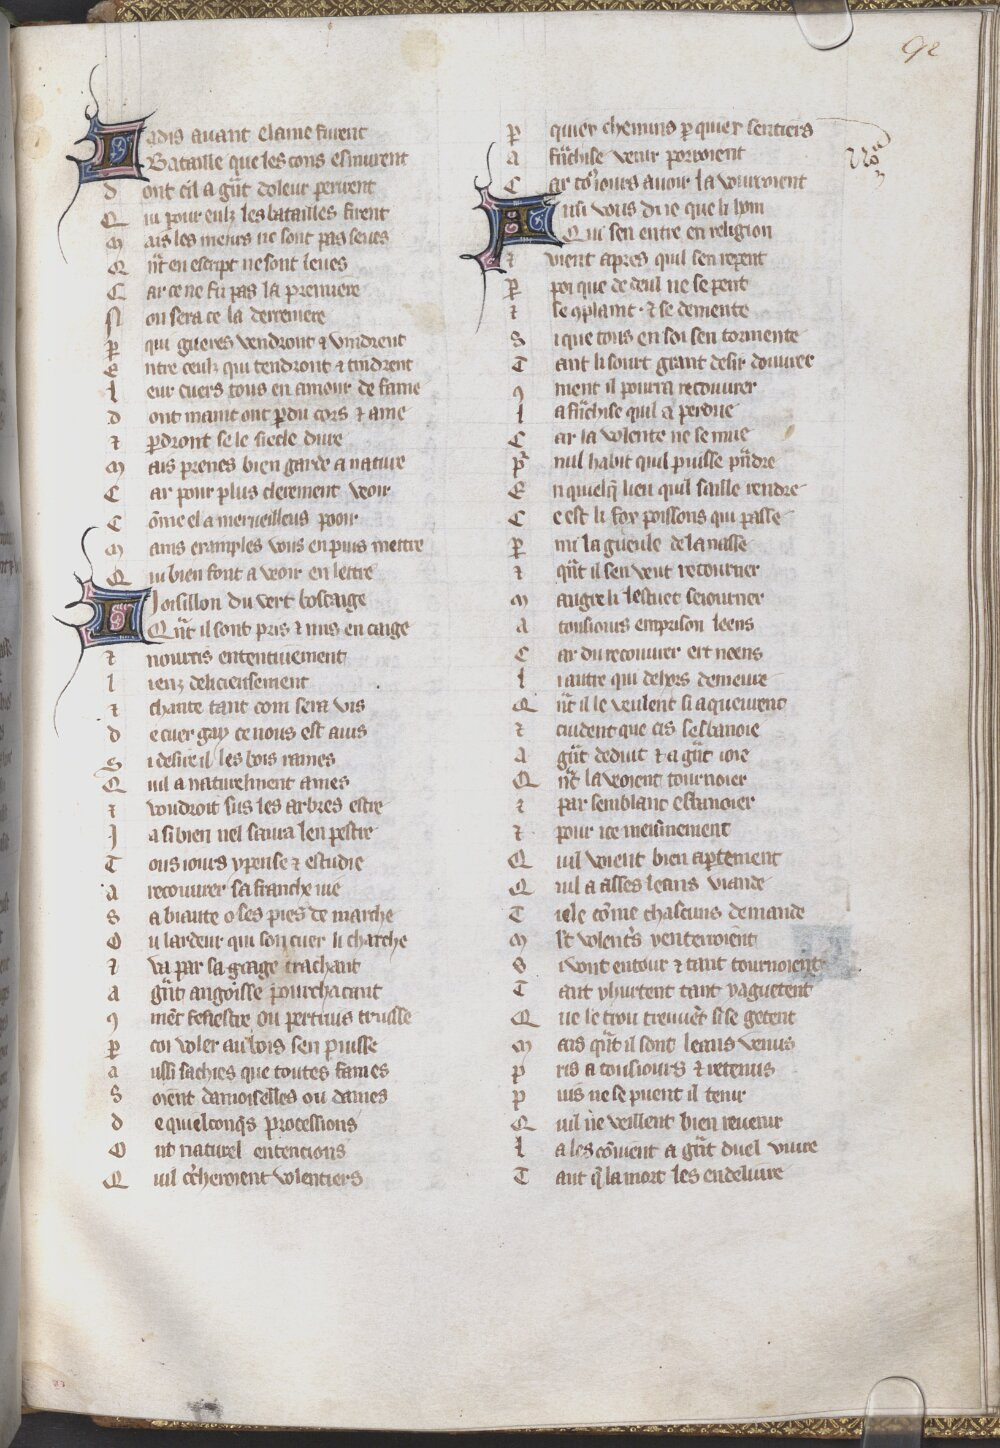 92
Iadis auant elaine furent
Bataille que les cons esmurent
dont cil a gñt doleur perirent
Qui pour eulx les batailles firent
mais les meurs ne sont pas seues
Qñt en escript ne sont leues
Car ce ne fu pas la premiere
Non sera ce la derreniere
par qui guerres vendront ⁊ vindrent
Entre ceulz qui tendront ⁊ tindrent
leur cuers tous en amour de fame
dont maint ont pdu cors ⁊ ame
⁊ pdront se le siecle dure
mais prenes bien garde a nature
Car pour plus clerement veoir
Cōme el a merueilleus pooir
mains examples vous en puis mettre
Qui bien font a veoir en lettre
Loisillon du vert boscaige
Qñt il sont pris ⁊ mis en caige
⁊ nourris ententiuement
leenz delicieusement
⁊ chante tant com sera vis
de cuer gay ce nous est auis
Si desire il les bois rames
Quil a naturelment ames
⁊ voudroit sus les arbres estre
Ja si bien nel saura len pestre
Tous iours y pense ⁊ estudie
a recouurer sa franche uie
Sa viaute o ses pies de marche
O lardeur qui son cuer li charche
⁊ va par sa gcage trachant
a gñt angoisse pourchacant
9ment fenestre ou pertuis truisse
par coi voler au bois sen puisse
aussi sachies que toutes fames
Soient damoiselles ou dames
de quelconqs processions
Ont naturel entencions
Quil ccheroient volentiers
p quier chemins p quier sentiers
a frãchise venir porroient
Car to9iours auoir la vourroient
Ausi vous di ie que li hom
Qui sen entre en religion
⁊ vient apres quil sen repent
p poi que de deul ne se pent
⁊ se 9plaint ⁊ se demente
Si que tous en soi sen tormente
Tant li sourt grant desir douurer
9ment il pourra recouurer
la frãchise quil a perdue
Car la volente ne se mue
p nul habit quil puisse pñdre
En quelq lieu quil saille rendre
Cest li fox poissons qui passe
pmi la gueule de la nasse
⁊ qñt il sen veut retourner
maugre li lestuet seiourner
a tousiours emprison leens
Car du retouner ert neens
li autre qui dehors demeure
Qñt il le veulent si aqueurent
⁊ cuident que cis sesbanoie
a gñt deduit ⁊ a gñt ioie
Qñt la voient tournoier
⁊ par semblant esbanoier
⁊ pour ice meismement
Quil voient bien aptement
Quil a asses leans viande
Tele cōme chascuns demande
mlt volent's y enterroient
Si vont entour ⁊ tant tournoient
Tant yhurtent tant yaguetent
Que le trou treuuēt si se getent
mais qñt il sont leans venus
pris a tousiours ⁊ retenus
puis ne se puent il tenir
Quil ne veillent bien reuenir
la les cōuient a gñt duel viure
Tant q la mort les en deliure